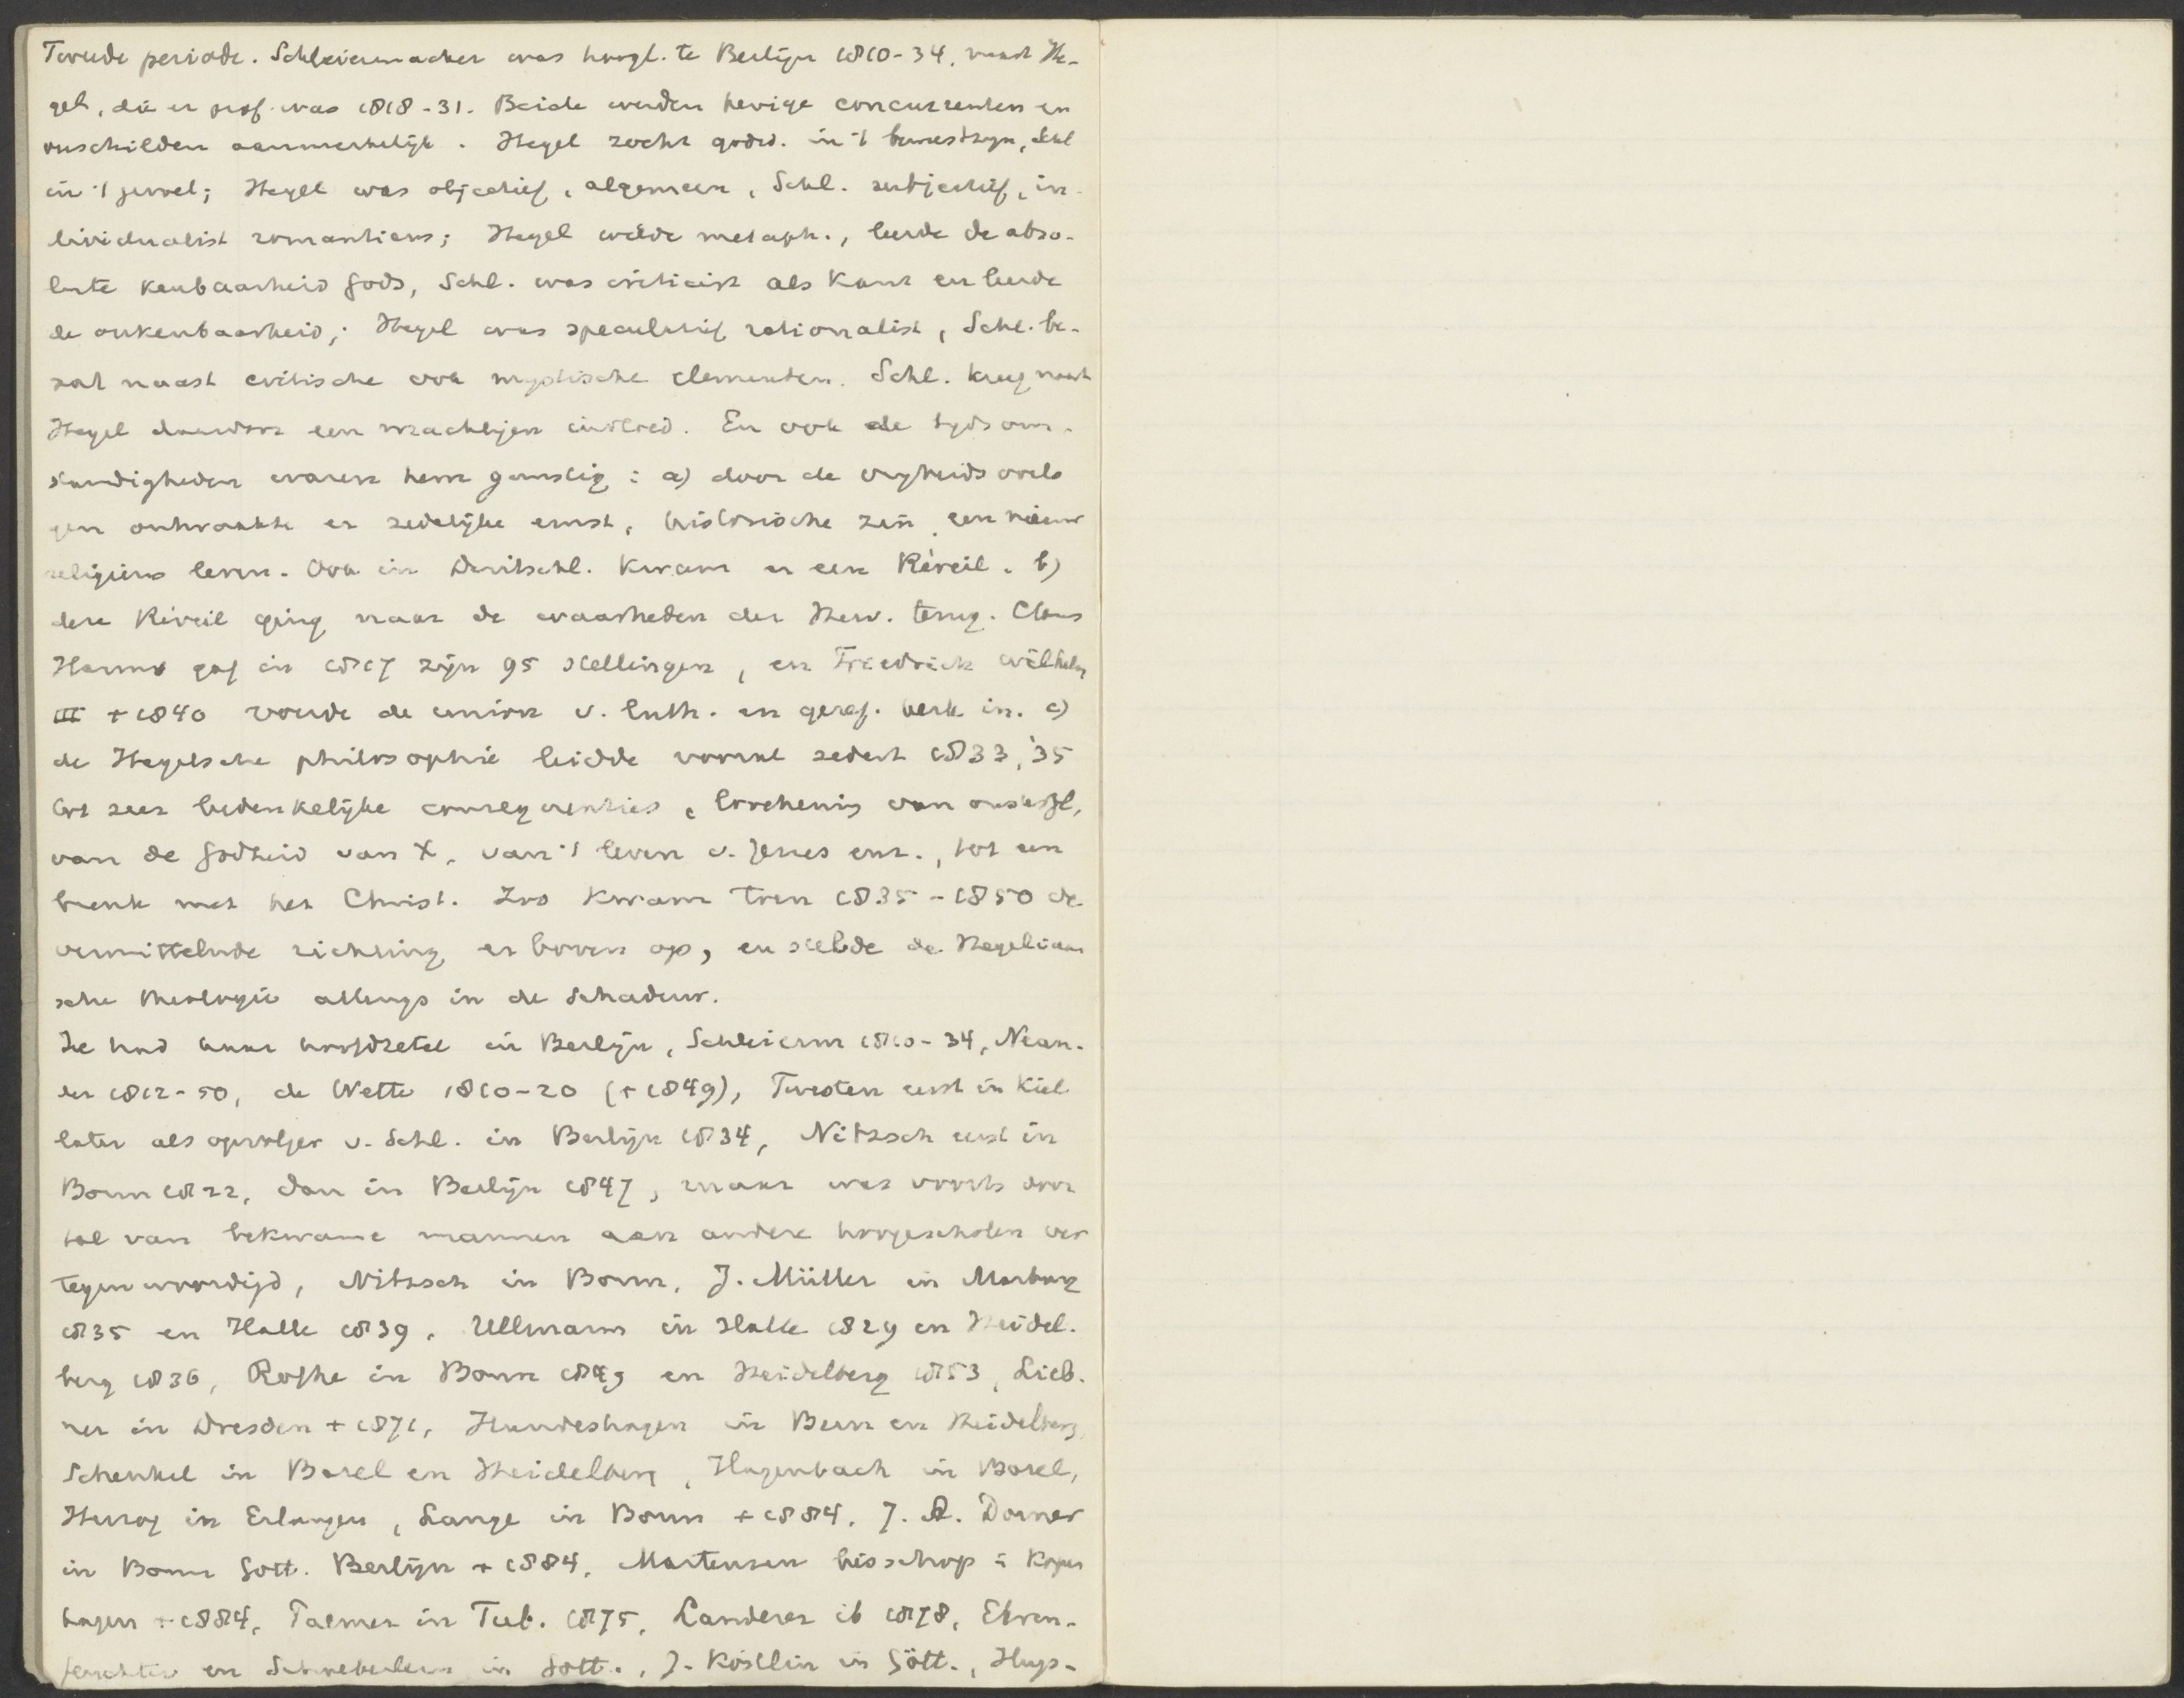 Tweede periode. Schleiermacher was hoogl. te Berlijn 1810-34, naast He-
gel, die er prof. was 1818-31. Beide werden hevige concurrenten en
verschilden aanmerkelijk. Hegel zocht godsd. in 't bewustzyn, Schl
in 't gevoel; Hegel was objectief, algemeen, Schl. subjectief, in-
dividualist romanticus; Hegel wilde metaph., leerde de abso-
lute kenbaarheid Gods, Schl. was criticist als Kant en leerde
de onkenbaarheid; Hegel was speculatief rationalist, Schl. be-
zat naast critische ook mystische elementen. Schl. kreeg naast
Hegel daardoor een machtigen invloed. En ook de tyds om-
standigheden waren hem gunstig: a) door de vryheids oorlo
gen ontwaakte er zedelijke ernst, historische zin, een nieuw
religieus leven. Ook in Duitschl. kwam er een Réveil. b)
deze Réveil ging naar de waarheden der Herv. terug. Claus
Harms gaf in 1817 zijn 95 stellingen, en Friedrich Wilhelm
III + 1840 voerde de union v. Luth. en geref. kerk in. c)
de Hegelsche philosophie leidde vooral sedert 1833, '35
tot zeer bedenkelijke consequenties, loochening van onsterfl,
van de Godheid van X, van 't leven v. Jezus enz., tot een
breuk met het Christ. Zoo kwam toen 1835-1850 de
vermittelnde richting er boven op, en stelde de Hegeliaan
sche theologie allengs in de schaduw.
Ze had haar hoofdzetel in Berlijn, Schleierm 1810-34, Nean-
der 1812-50, de Wette 1810-20 (+ 1849), Twesten eerst in Kiel
later als opvolger v. Schl. in Berlijn 1834, Nitzsch eerst in
Bonn 1822, dan in Berlijn 1847, maar was voorts door
tal van bekwame mannen aan andere hoogescholen ver
tegenwoordigd, Nitzsch in Bonn, J. Müller in Marburg
1835 en Halle 1839, Ullmann in Halle 1829 en Heidel-
berg 1836, Rothe in Bonn 1849 en Heidelberg 1853, Lieb-
ner in Dresden + 1871, Hundeshagen in Bern en Heidelberg,
Schenkel in Basel en Heidelberg, Hagenbach in Basel,
Herzog in Erlangen, Lange in Bonn + 1884, J. A. Dorner
in Bonn Gott. Berlijn + 1884, Martensen bisschop i Kopen
hagen + 1884, Palmer in Tub. 1875, Landerer ib 1878, Ehren-
feuchter en Schoeberlein in Gött., J. Köstlin in Gött., Hup-